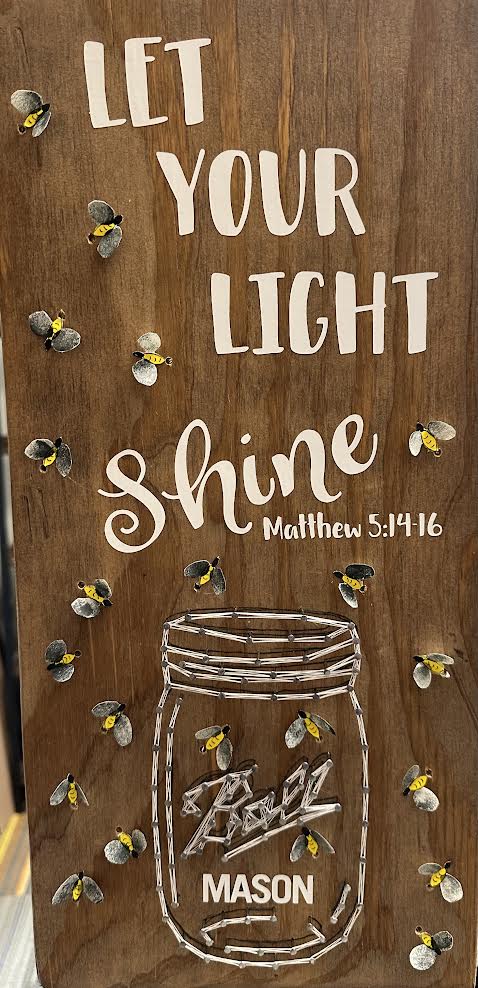 LET
YOUR
LIGHT
Shine
Matthew 5:14-16
Ball
MASON